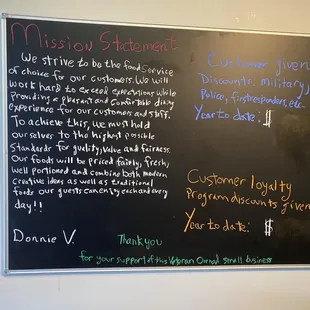 Mission Statement
We strive to be the food service
of choice for our customers. We will
work hard to exceed expectations while
providing a pleasant and comfortable dining
experience for our customers and staff.
To achieve this, we must hold
ourselves to the highest possible
Standards for quality, value and fairness.
Our foods will be priced fairly, fresh,
well portioned and combine both modern
creative ideas as well as traditional
foods our guests can enjoy each and every
day!!
Donnie V.
Customer given
Discounts, military,
Police, first responders, etc.
Year to date: $
Customer loyalty
Program discounts given
Year to date: $
Thank you
for your support of this Veteran Owned small business